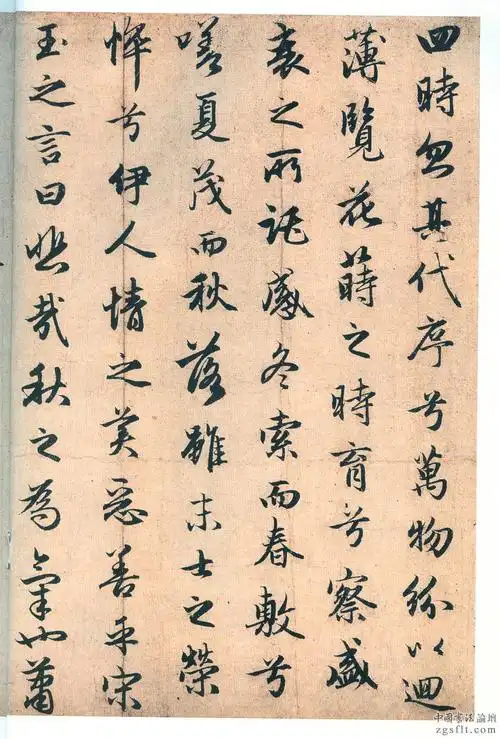 四時忽其代序兮萬物紛以迴
薄覽花蒔之時育兮察盛
衰之所託感冬索而春敷兮
嗟夏茂而秋落雖末士之榮
悴兮伊人情之美惡善乎宋
玉之言曰悲哉秋之為氣也蕭
中國書法論壇
zgsflt.com